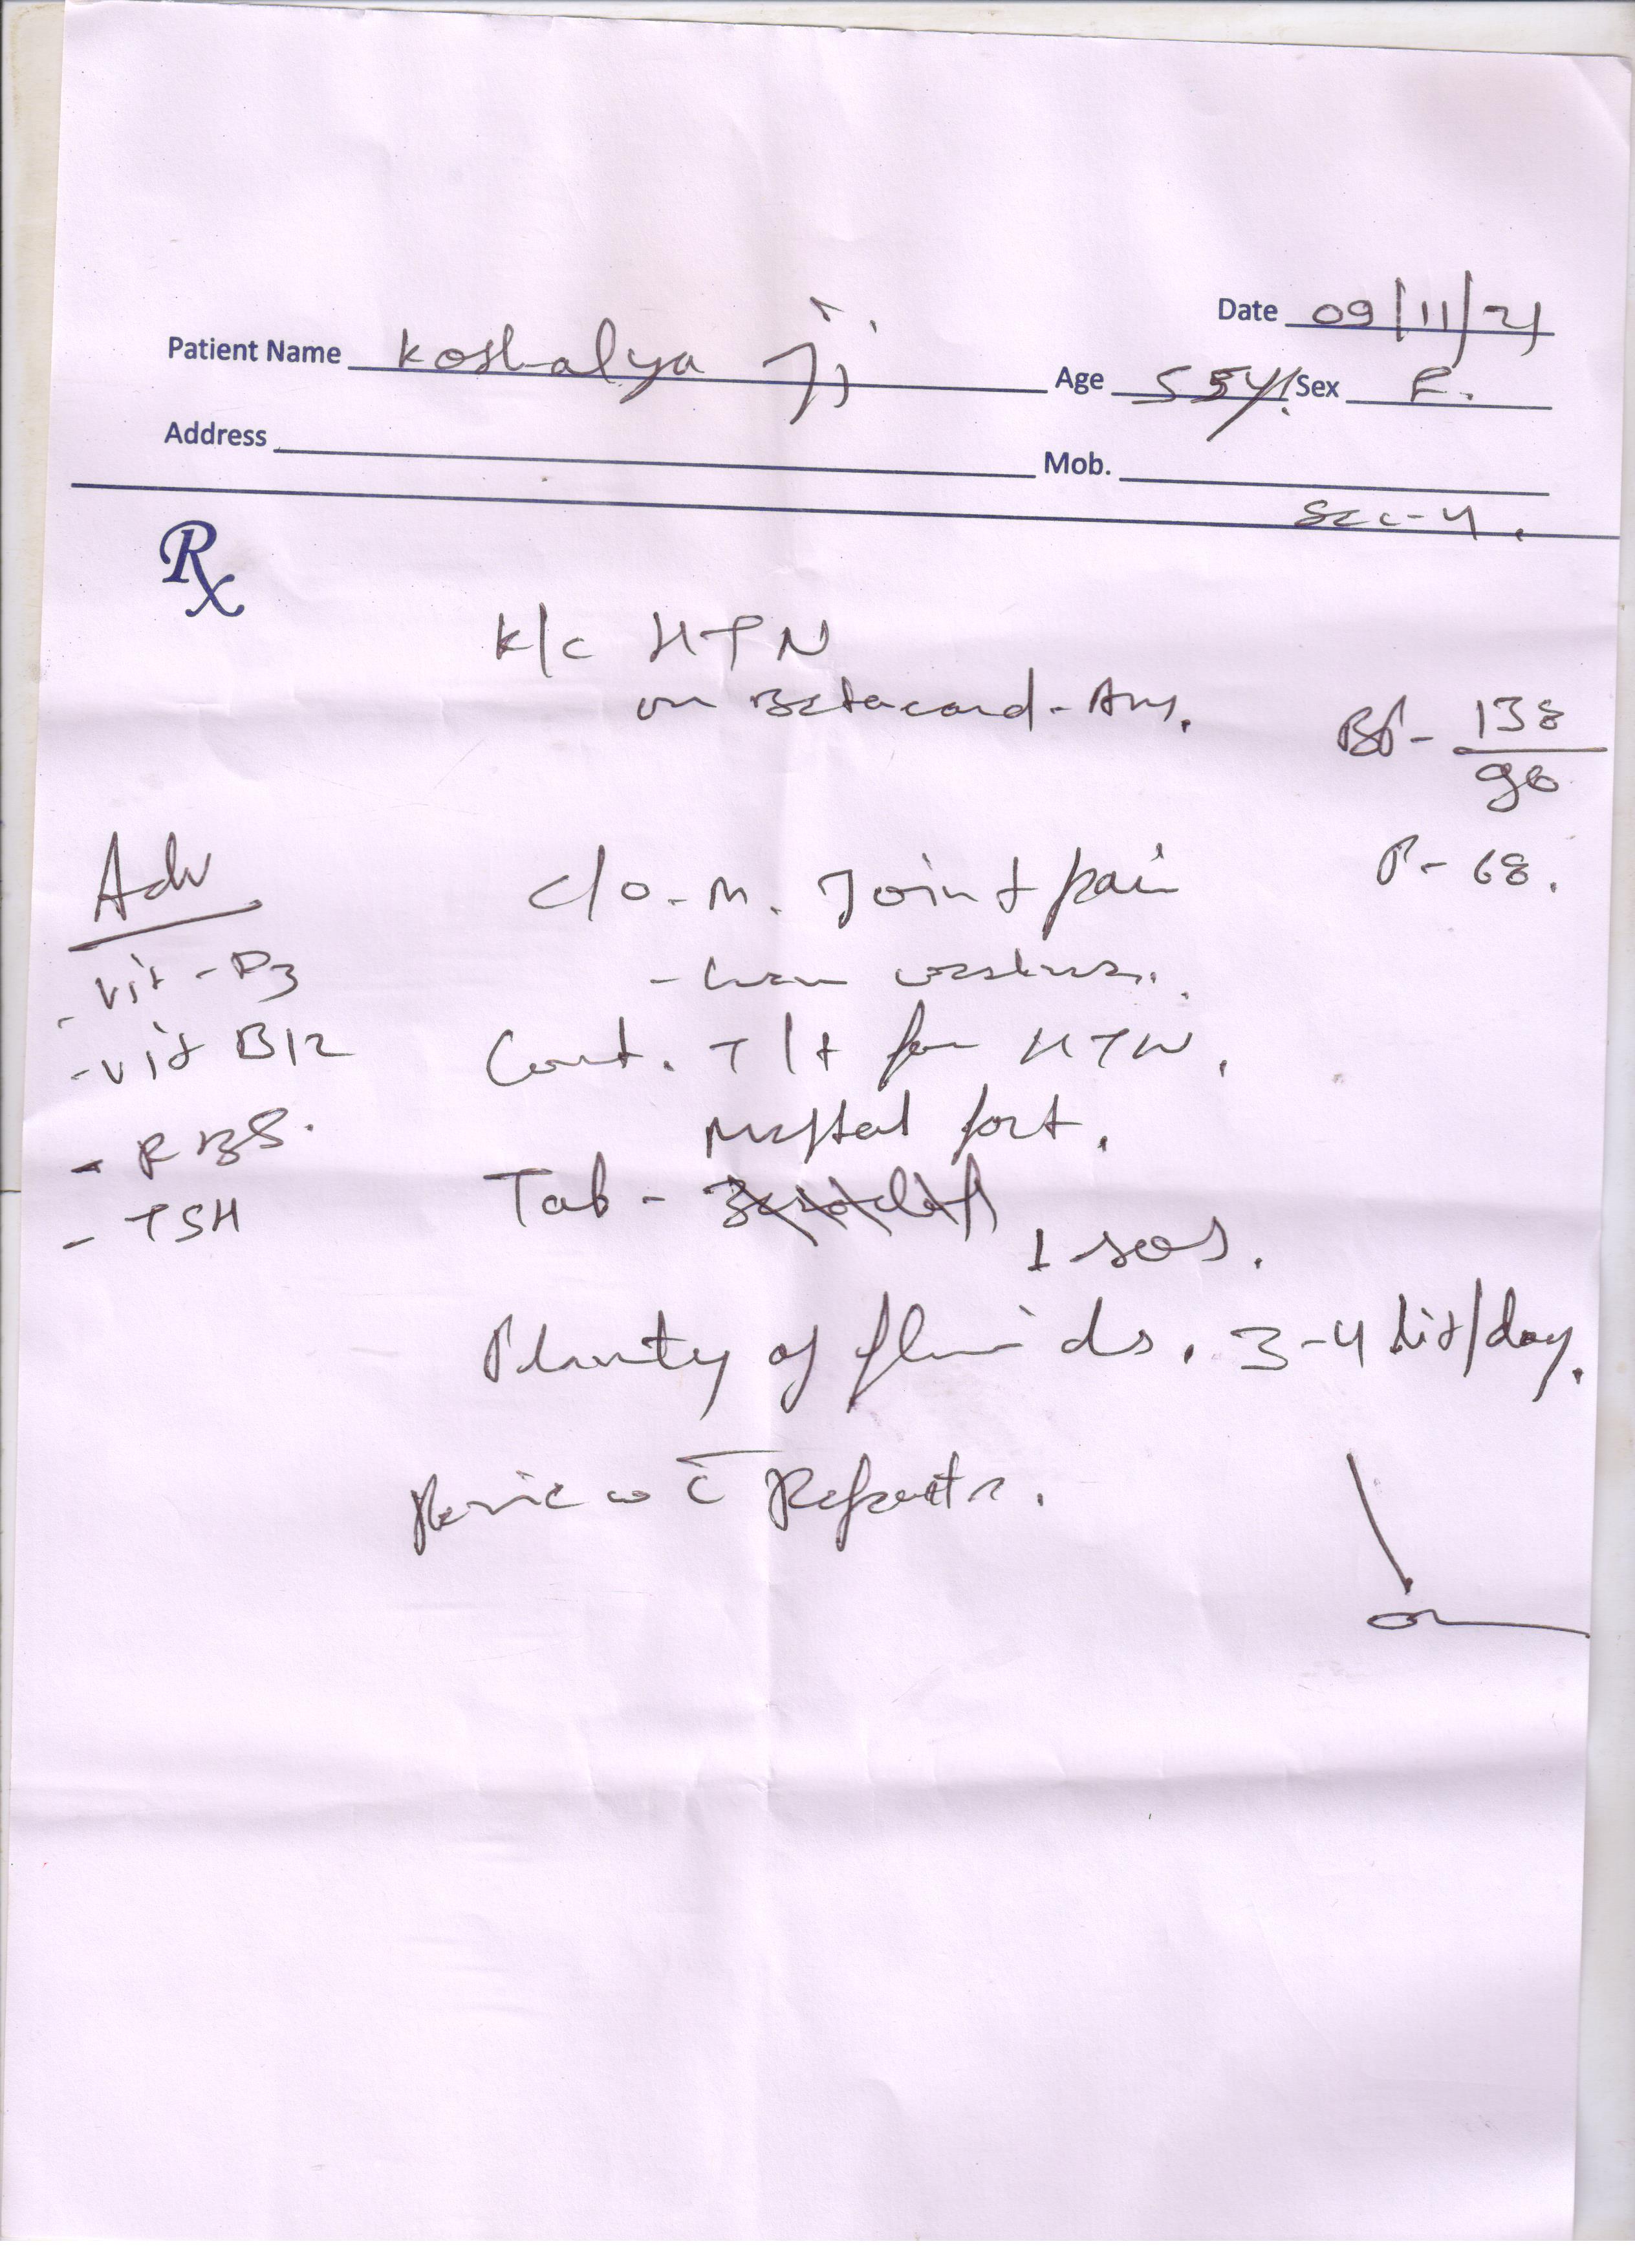 Date 09/11/21
Patient Name Koshalya Ji
Age 55y/ Sex F.
Address
Mob.
Sec-4.
Rx
K/c HTN
on Betacard-Am.
BP- 138/90
P- 68.
Adv
- Vit - D3
- Vit B12
- RBS.
- TSH
C/O - M. Joint pain
Cont. T/t for HTN.
Meftal fort.
Tab -
1 sos.
Plenty of fluids. 3-4 lit/day.
Review c̄ Reports.